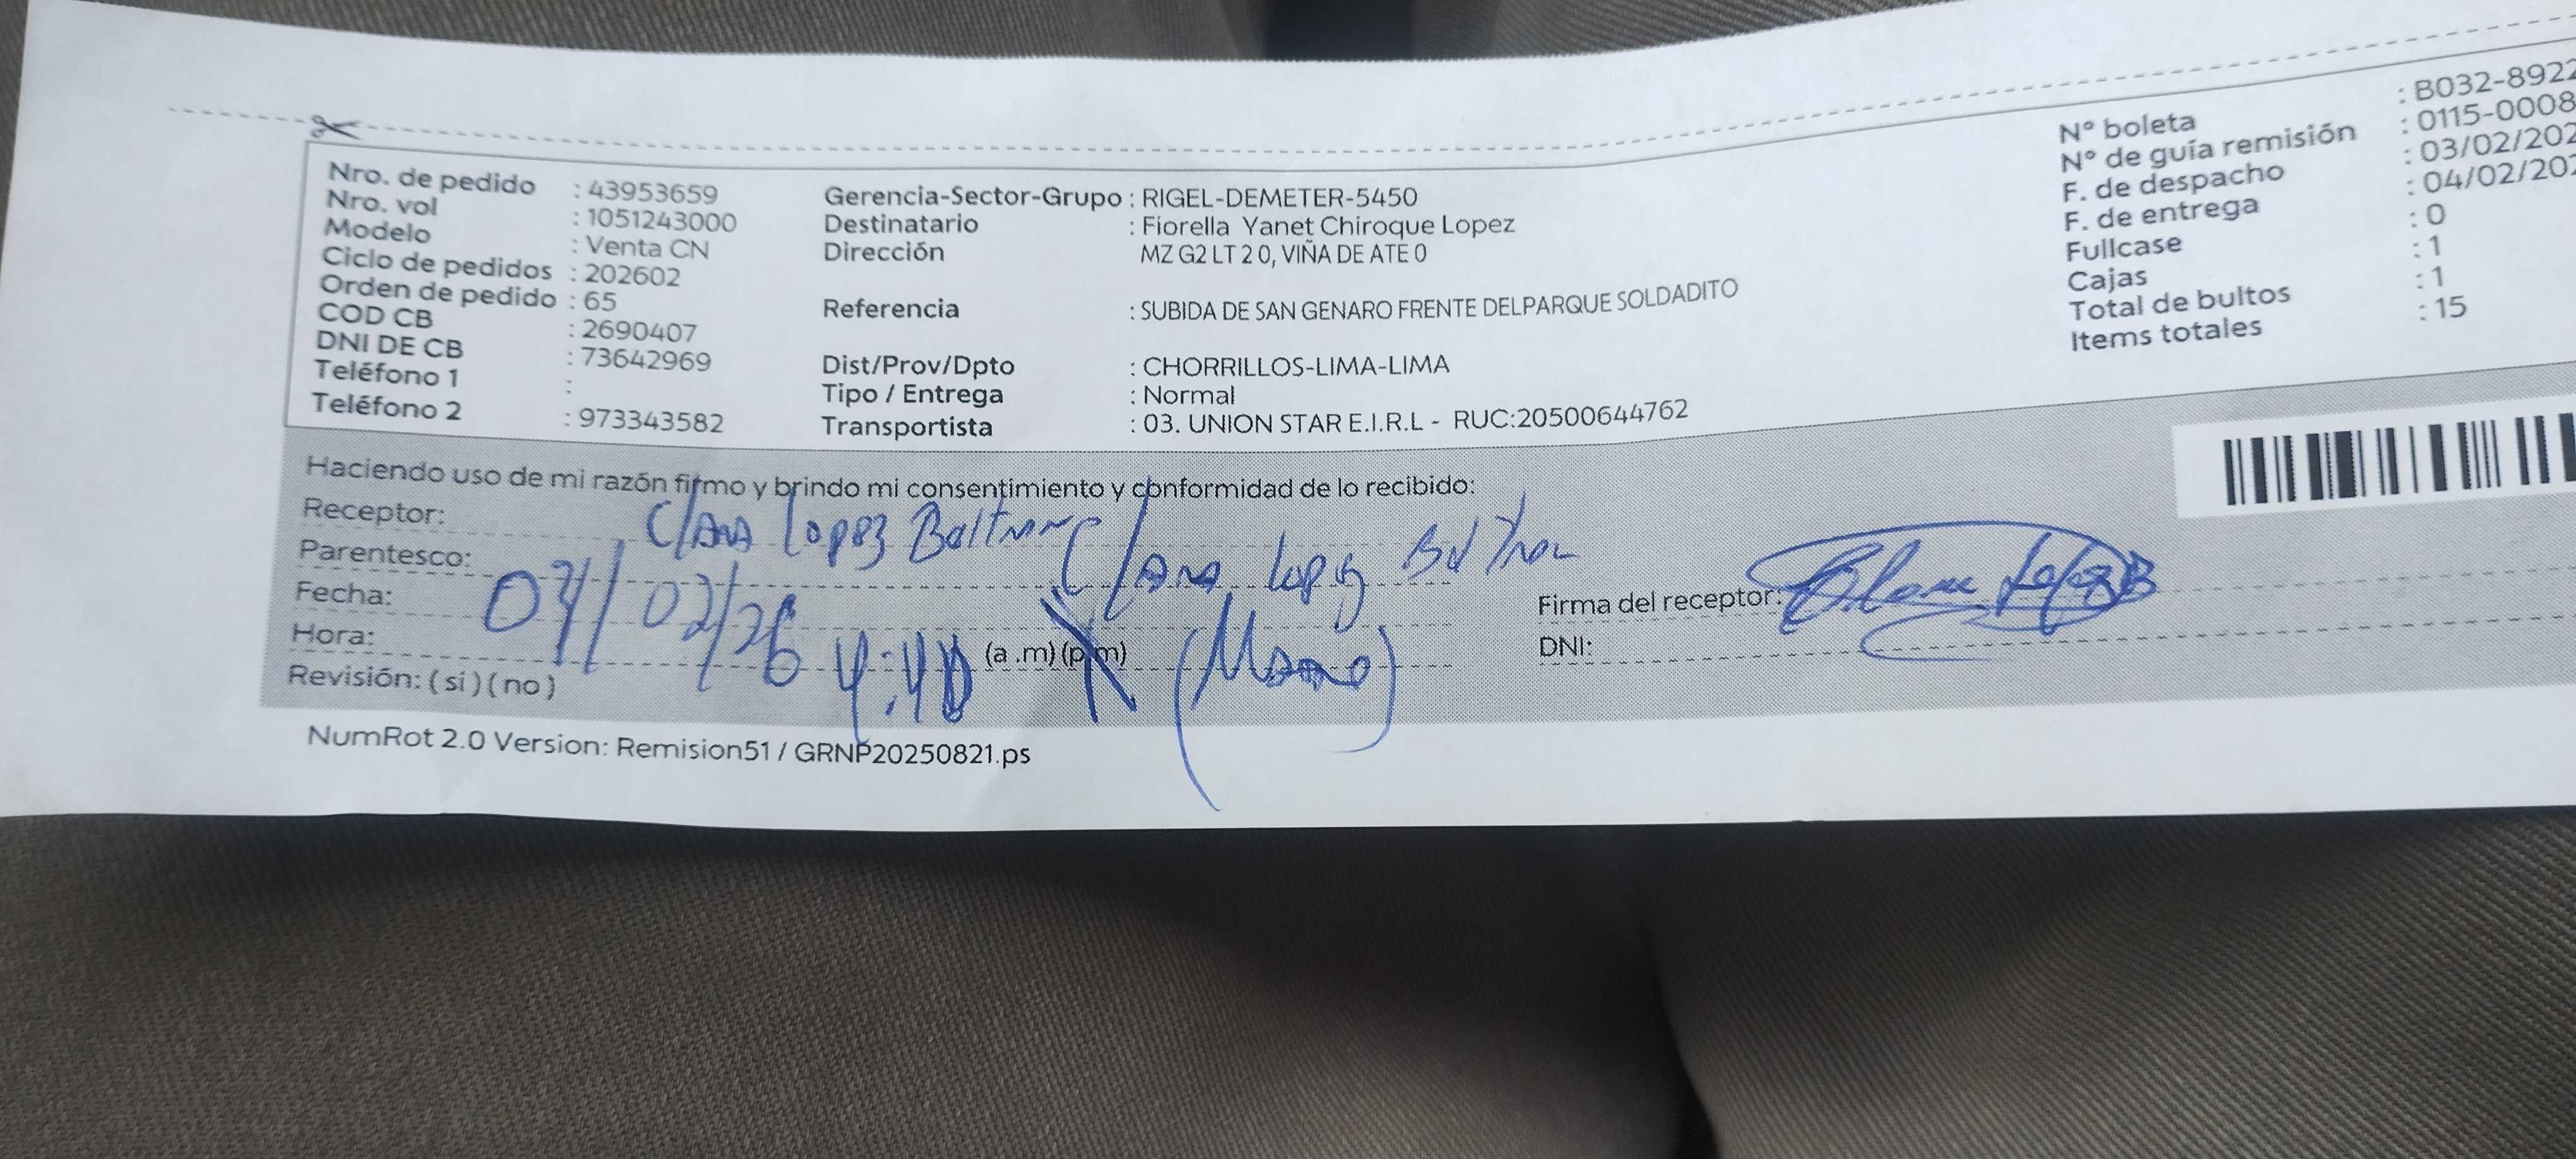 Nro. de pedido : 43953659
Nro. vol : 1051243000
Modelo : Venta CN
Ciclo de pedidos : 202602
Orden de pedido : 65
COD CB : 2690407
DNI DE CB : 73642969
Teléfono 1 :
Teléfono 2 : 973343582
Gerencia-Sector-Grupo : RIGEL-DEMETER-5450
Destinatario : Fiorella Yanet Chiroque Lopez
Dirección MZ G2 LT 2 0, VIÑA DE ATE 0
Referencia : SUBIDA DE SAN GENARO FRENTE DELPARQUE SOLDADITO
Dist/Prov/Dpto : CHORRILLOS-LIMA-LIMA
Tipo / Entrega : Normal
Transportista : 03. UNION STAR E.I.R.L - RUC:20500644762
N° boleta : B032-8922
N° de guía remisión : 0115-0008
F. de despacho : 03/02/202
F. de entrega : 04/02/202
Fullcase : 0
Cajas : 1
Total de bultos : 1
Items totales : 15
Haciendo uso de mi razón firmo y brindo mi consentimiento y conformidad de lo recibido:
Receptor: Clara Lopez Beltran
Parentesco: Clara Lopez Beltran
Fecha: 04/02/26
Hora: 4:40 (a .m) (p.m)
Revisión: ( si ) ( no )
Firma del receptor:
DNI:
NumRot 2.0 Version: Remision51 / GRNP20250821.ps